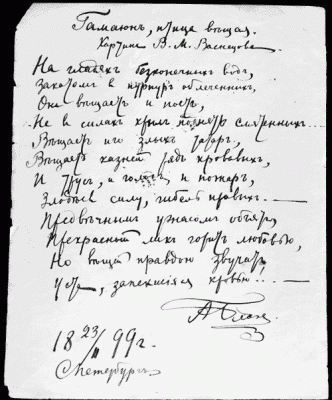 Гамаюнъ, птица вѣщая.
Картина В. М. Васнецова
На гладяхъ безконечныхъ водъ,
Закатомъ в пурпуръ облеченныхъ,
Она вѣщаетъ и поетъ,
Не в силахъ крылъ поднять смятенныхъ
Вѣщаетъ иго злыхъ татаръ,
Вѣщаетъ казней рядъ кровавыхъ,
И трусъ, и голодъ, и пожаръ,
Злодѣевъ силу, гибель правыхъ. —
Предвѣчнымъ ужасомъ объятъ,
Прекрасный ликъ горитъ любовью,
Но вѣщей правдою звучатъ
Уста, запекшіяся кровью... —
А Блок
18 23/II 99 г.
С Петербургъ